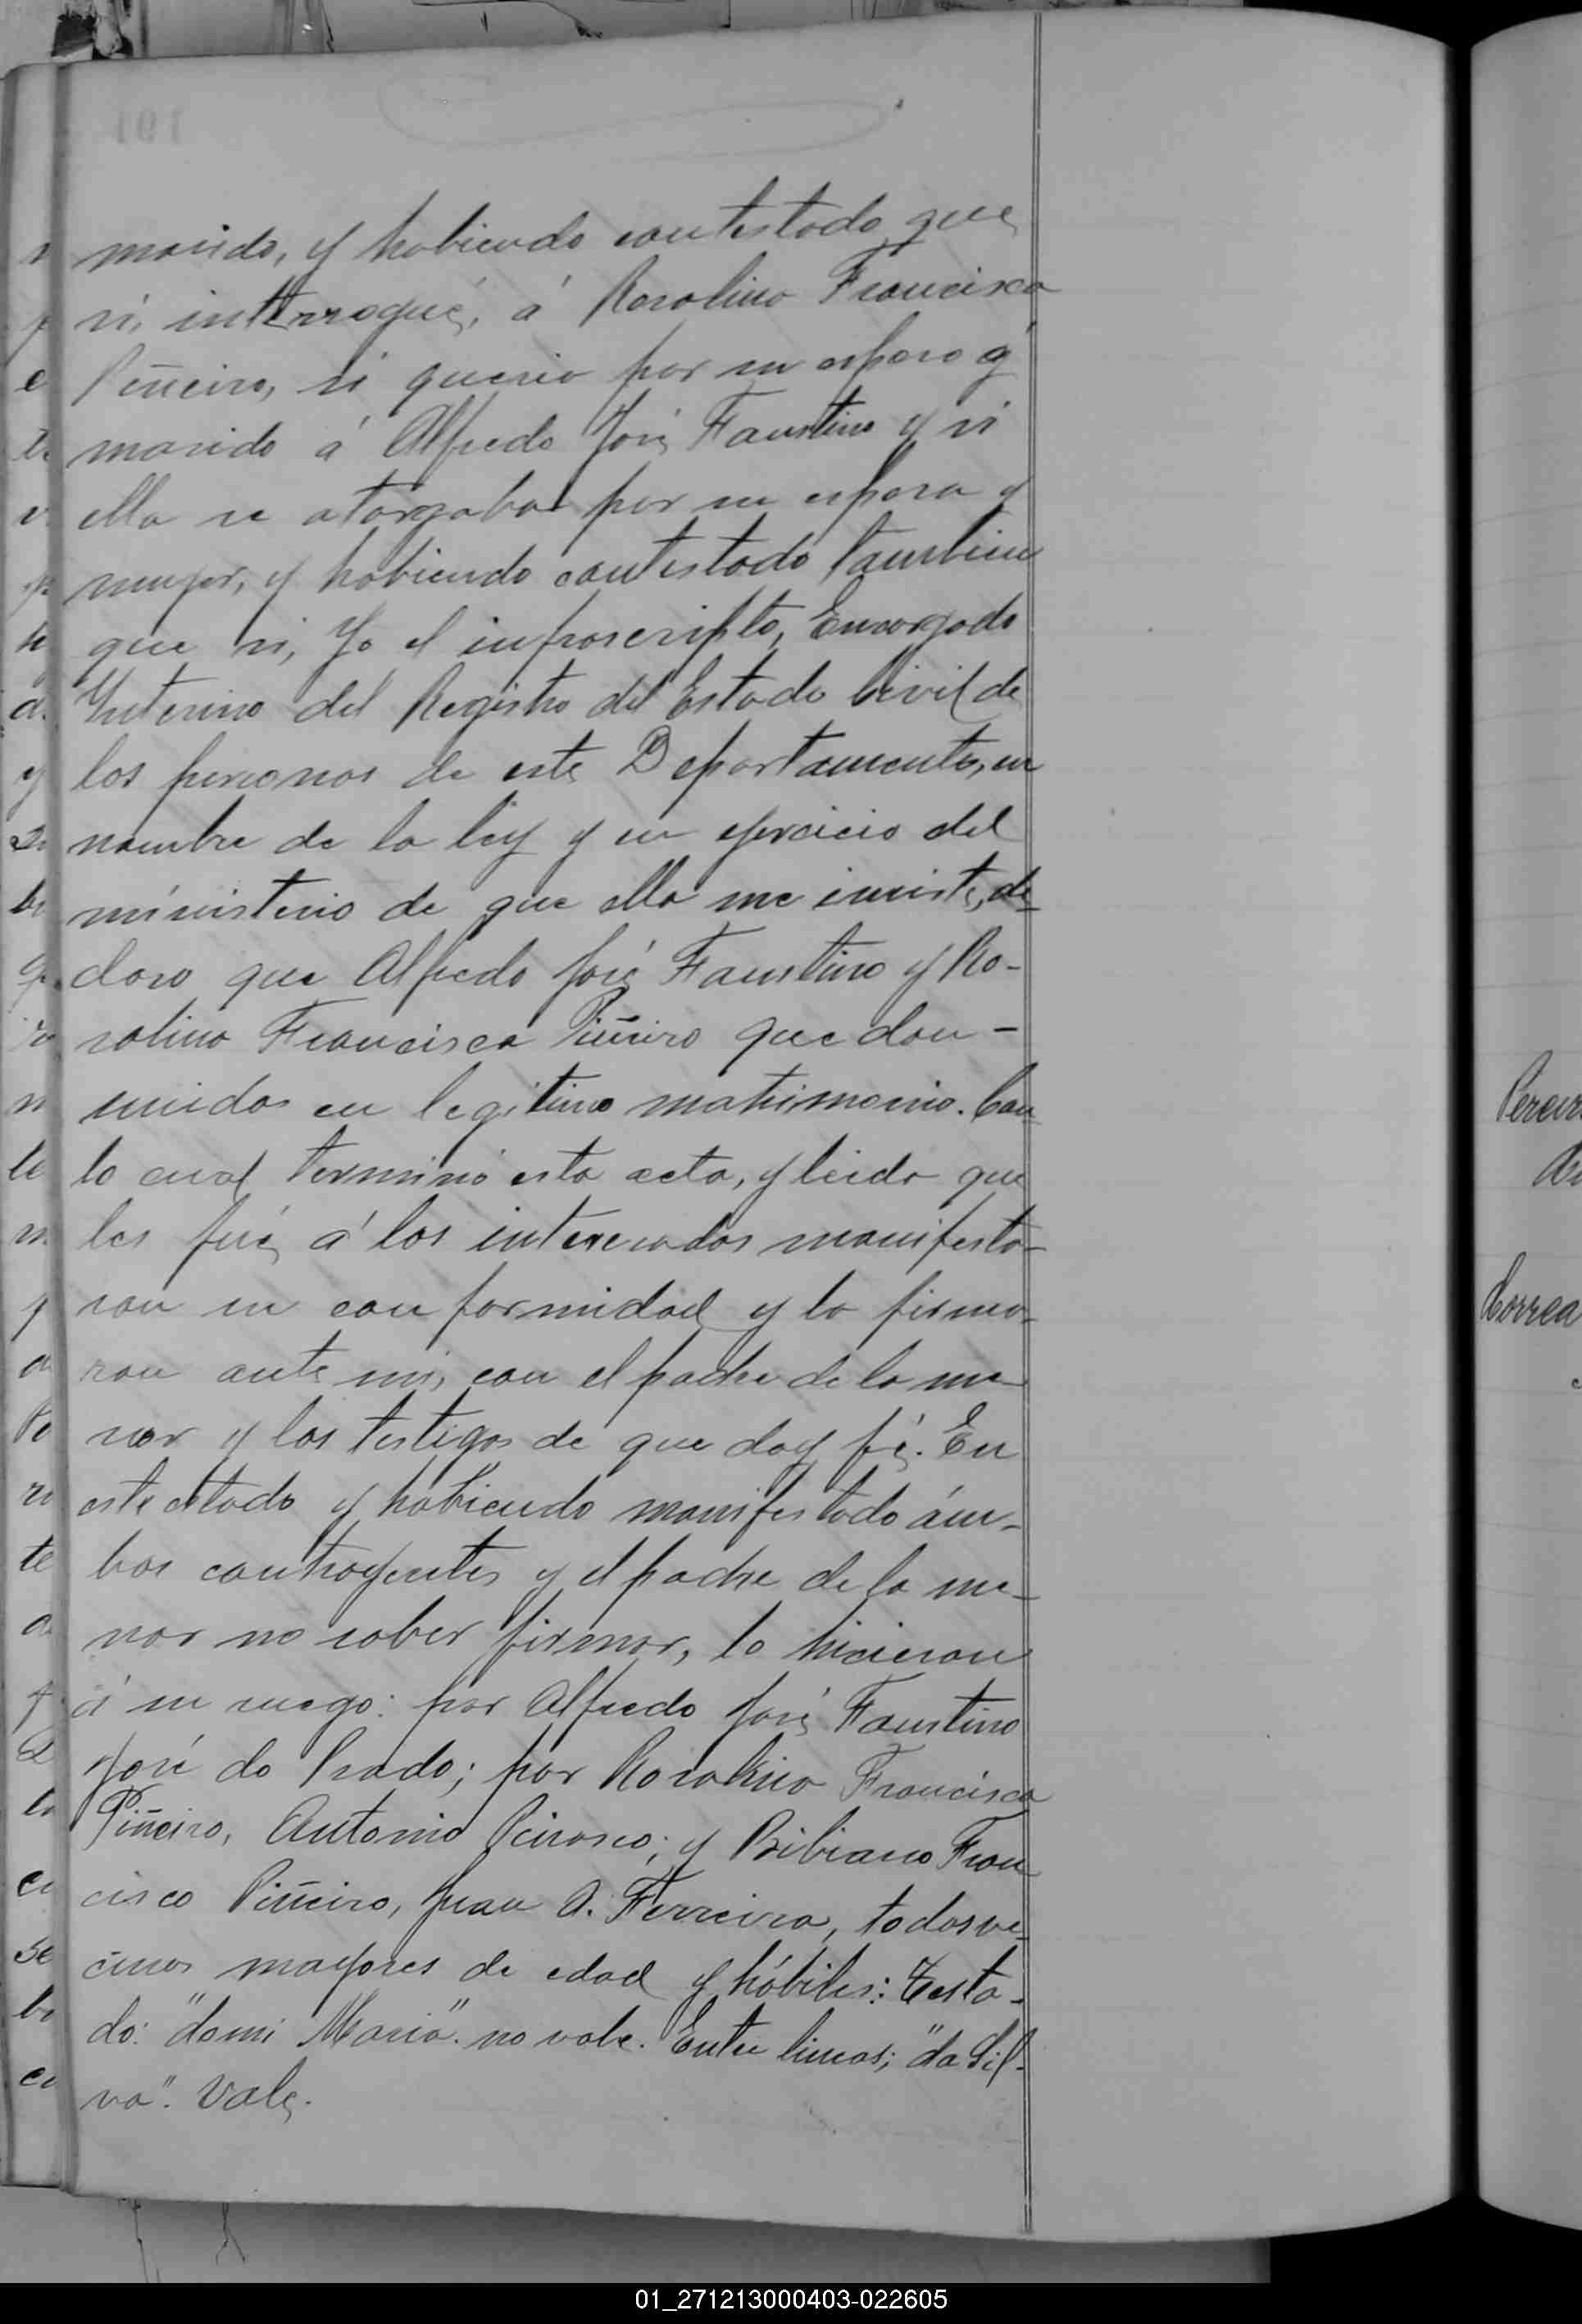 marido, y habiendo contestado que
si, interrogué, á Rosalina Francisca
Piñeiro, si queria por su esposo y
marido á Alfredo José Faustino y si
ella se otorgaba por su esposa y
muger, y habiendo contestado tambien
que si, Yo el infrascripto, Encargado
Interino del Registro del Estado Civil de
las personas de este Departamento, en
nombre de la ley y en ejercicio del
ministerio de que ella me inviste, de-
claro que Alfredo José Faustino y Ro-
salina Francisca Piñeiro quedan-
unidos en legitimo matrimonio. Con
lo cual terminó esta acta, y leida que
les fué á los interesados manifesta-
ron su conformidad y la firma-
ron ante mi, con el padre de la me-
nor y los testigos de que doy fé. En
este estado y habiendo manifestado ám-
bos contrayentes y el padre de la me-
nor no saber firmar, lo hicieron
á su ruego: por Alfredo José Faustino
José do Prado; por Rosalina Francisca
Piñeiro, Antonio; y Bibiano Fran
cisco Piñeiro, Juan A. Ferreira, todos ve-
cinos mayores de edad y hábiles: Testa-
do: "Maria". no vale. Entre lineas; "da Sil-
va". Vale.
Correa
01_271213000403-022605